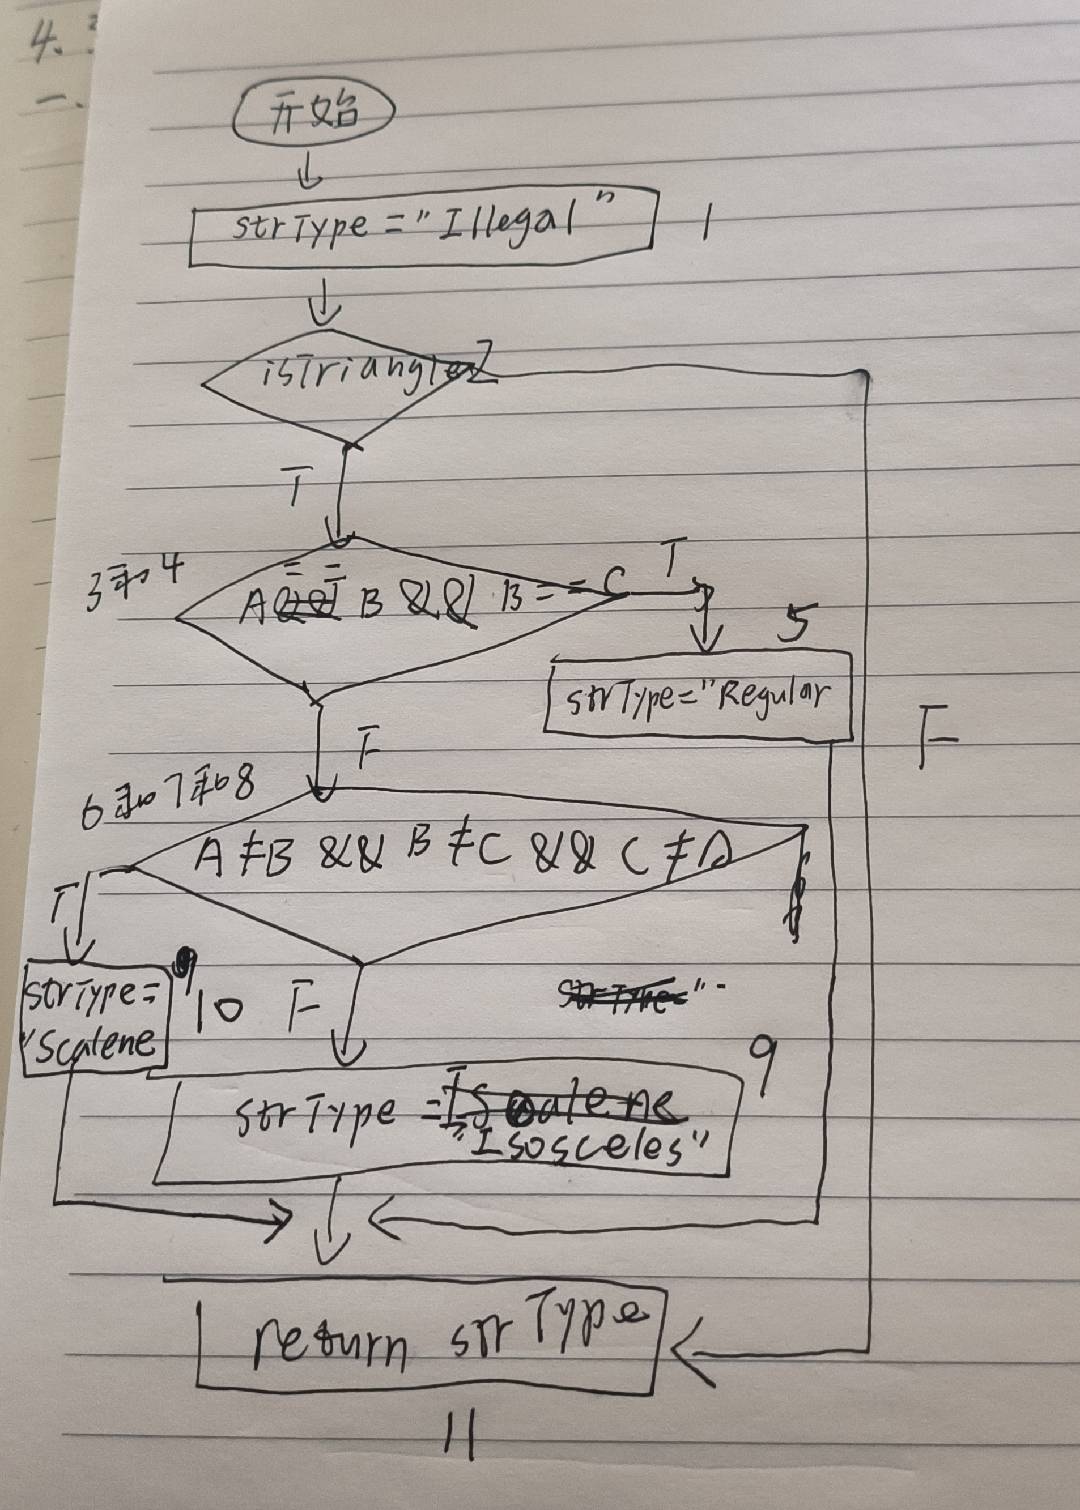 4.
一、
开始
strType="Illegal"
1
isTriangle
2
T
3和4
A == B && B == C
T
5
strType="Regular
F
F
6和7和8
A ≠B && B ≠C && C ≠A
T
strType=
"Scalene
10
F
strType="-
9
strType =
"Isosceles"
return strType
11